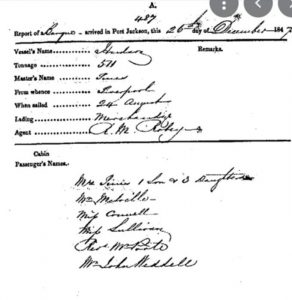 A.
487
Report of Barque arrived in Port Jackson, this 26th day of December 184
Vessel's Name Hindoo
Remarks.
Tonnage 511
Master's Name
From whence Liverpool
When sailed 24 August
Lading Merchandise
Agent R. M. Robey
Cabin
Passenger's Names.
Mrs 1 Son & 3 Daughters
Melville
Miss Connell
Miss Sullivan
Revd Mr
Mr John Waddell